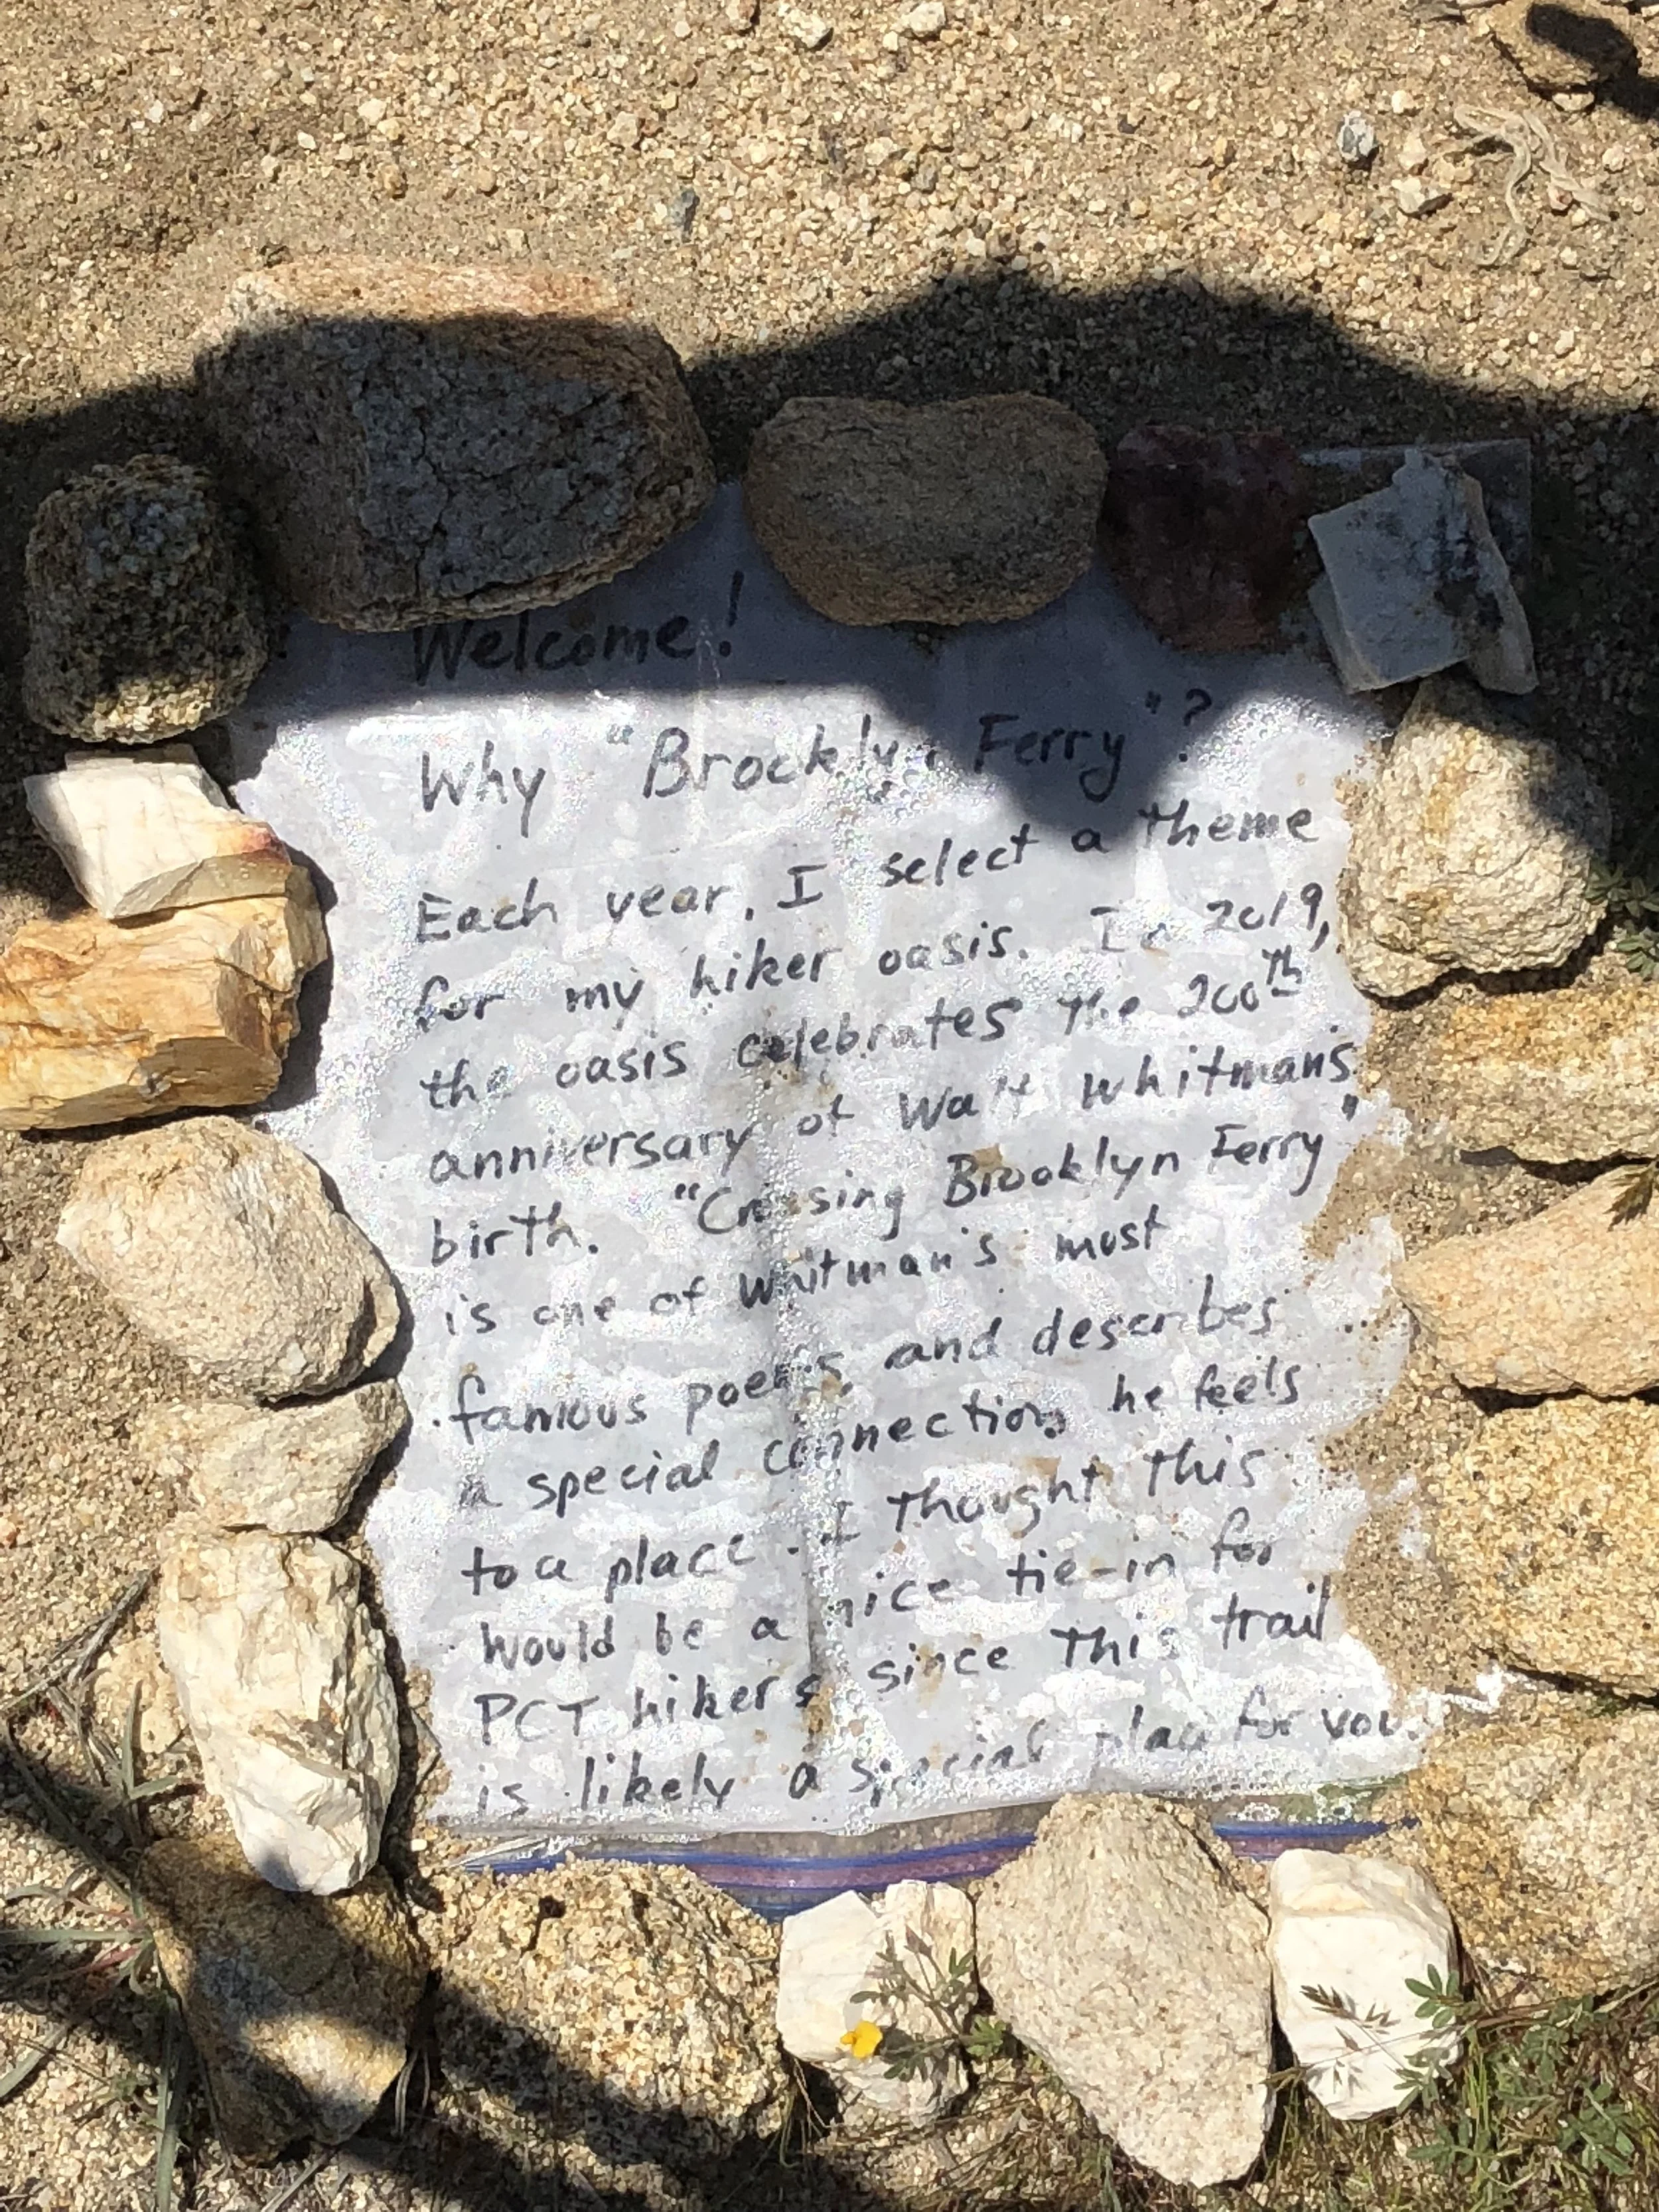 Welcome!
Why "Brooklyn Ferry"?
Each year, I select a theme
for my hiker oasis. In 2019,
the oasis celebrates the 200th
anniversary of Walt Whitman's
birth. "Crossing Brooklyn Ferry"
is one of Whitman's most
famous poems and describes
a special connection he feels
to a place. I thought this
would be a nice tie-in for
PCT hikers since this trail
is likely a special place for you.